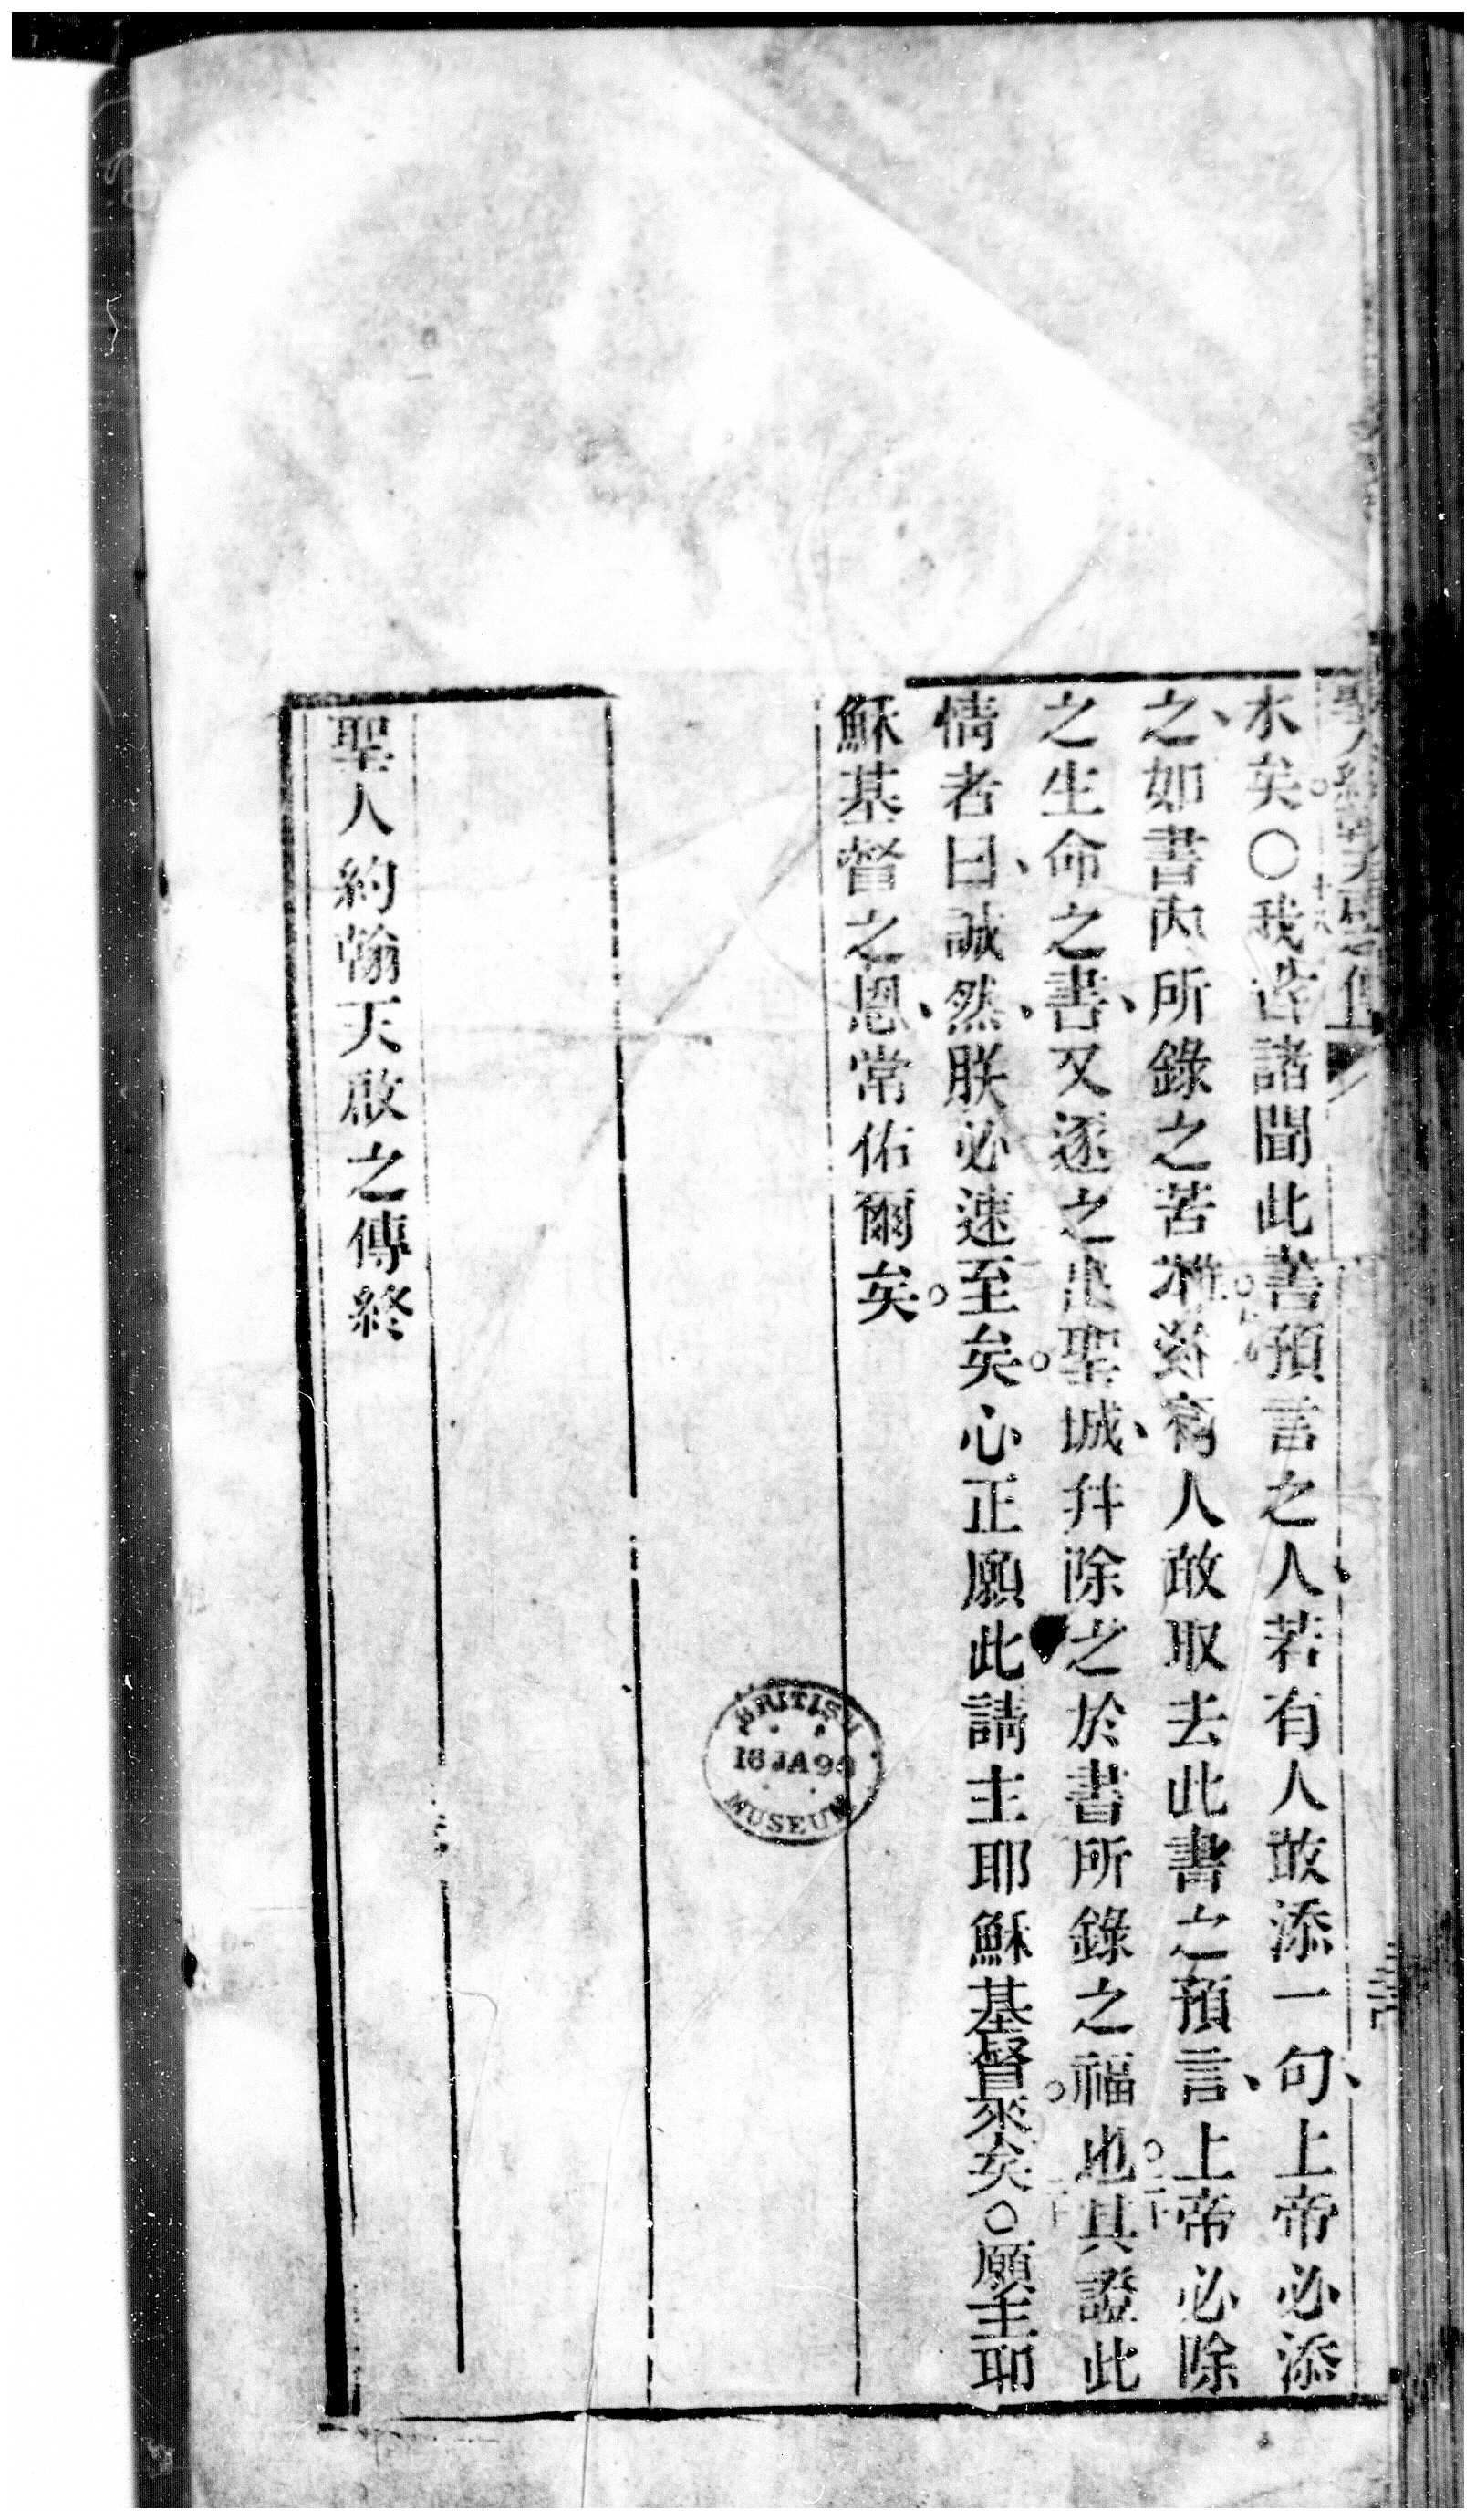 水矣。〇我告諸聞此書預言之人、若有人敢添一句、上帝必添
之、如書內所錄之苦難。若有人敢取去此書之預言、上帝必除
之生命之書、又逐之出聖城、并除之於書所錄之福也。其證此
情者曰、誠然、朕必速至矣。心正願此請主耶穌基督來矣。〇願主耶
穌基督之恩、常佑爾矣。
聖人約翰天啟之傳終
BRITISH
18 JA 99
MUSEUM